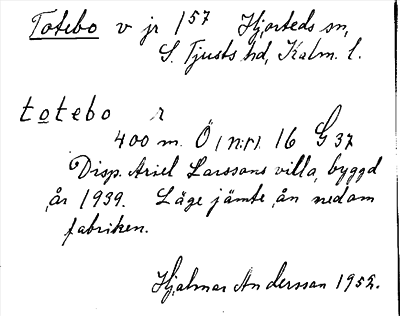 Totebo v jr 1 57 Hjorteds sn,
S. Tjusts hd, Kalm. l.
totebo
400 m. Ö 16 G 37
Disp. Ariel Larssons villa, byggd
år 1939. Läge jämte ån nedom
fabriken.
Hjalmar Andersson 1952.